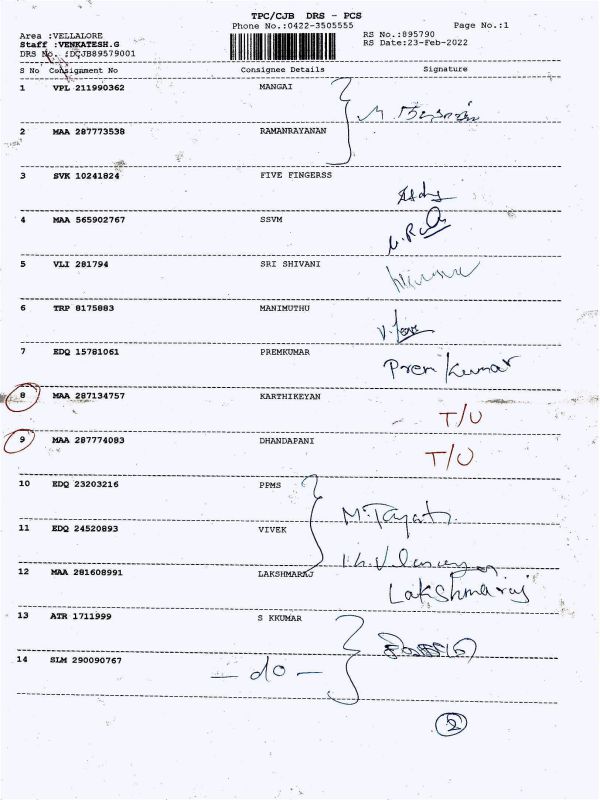 TPC/CJB DRS - PCS
Phone No.:0422-3505555 Page No.:1
Area :VELLALORE RS No.:895790
Staff :VENKATESH.G RS Date:23-Feb-2022
DRS No. :DCJB89579001
S No Consignment No Consignee Details Signature
1 VPL 211990362 MANGAI
2 MAA 287773538 RAMANRAYANAN
3 SVK 10241824 FIVE FINGERSS
4 MAA 565902767 SSVM
5 VLI 281794 SRI SHIVANI
6 TRP 8175883 MANIMUTHU
7 EDQ 15781061 PREMKUMAR Prem Kumar
8 MAA 287134757 KARTHIKEYAN T/U
9 MAA 287774083 DHANDAPANI T/U
10 EDQ 23203216 PPMS
11 EDQ 24520893 VIVEK
12 MAA 281608991 LAKSHMARAJ Lakshmaraj
13 ATR 1711999 S KKUMAR
14 SLM 290090767 - do -
2